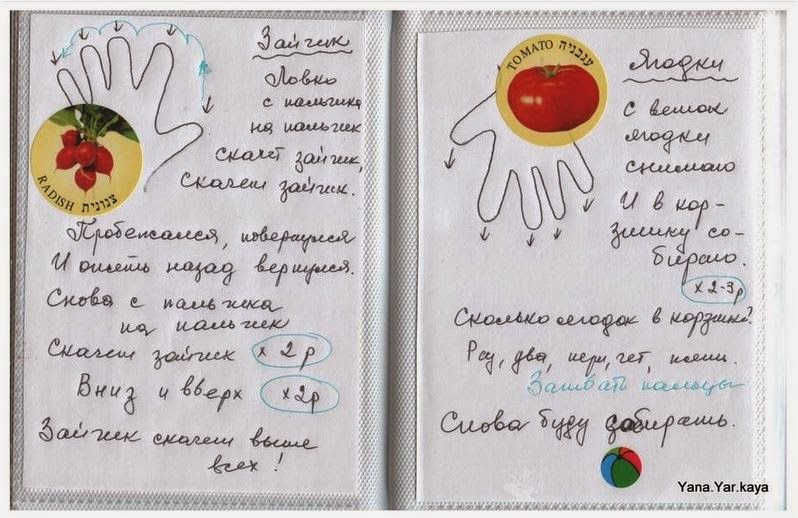 Зайчик
Ловко
с пальчика
на пальчик
скачет зайчик,
скачет зайчик.
RADISH צנונית
Пробежался, повернулся
И опять назад вернулся.
Снова с пальчика
на пальчик
Скачет зайчик х 2 р
Вниз и вверх х2р
Зайчик скачет выше
всех!
TOMATO עגבניה
Ягодки
С веток
ягодки
снимаю
И в кор-
зинку со-
бираю.
х 2-3р
Сколько ягодок в корзинке?
Раз, два, три, чет, пять.
Загибать пальцы
Снова буду собирать.
Yana.Yar.kaya